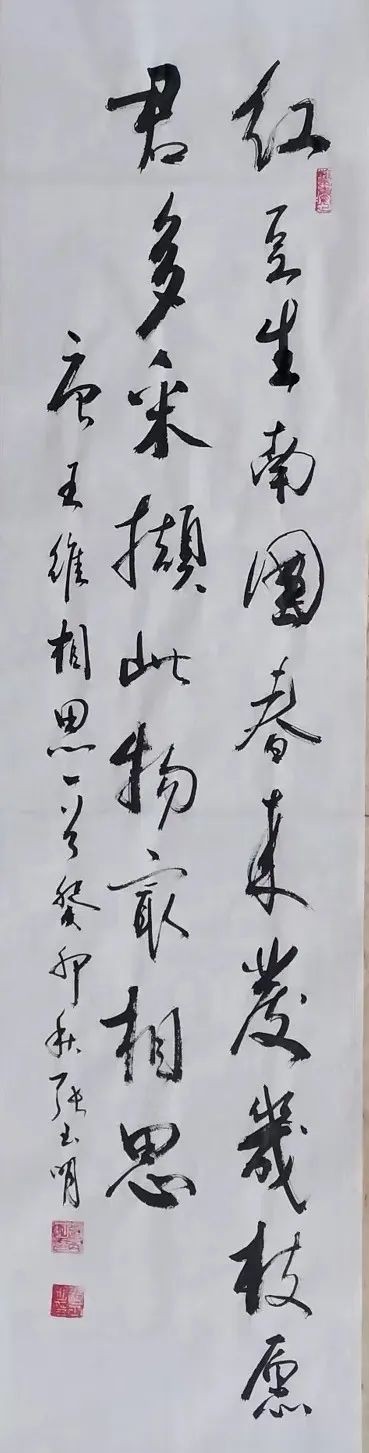 红豆生南國春来發幾枝愿
君多采擷此物最相思
唐王维相思一首癸卯秋张玉明